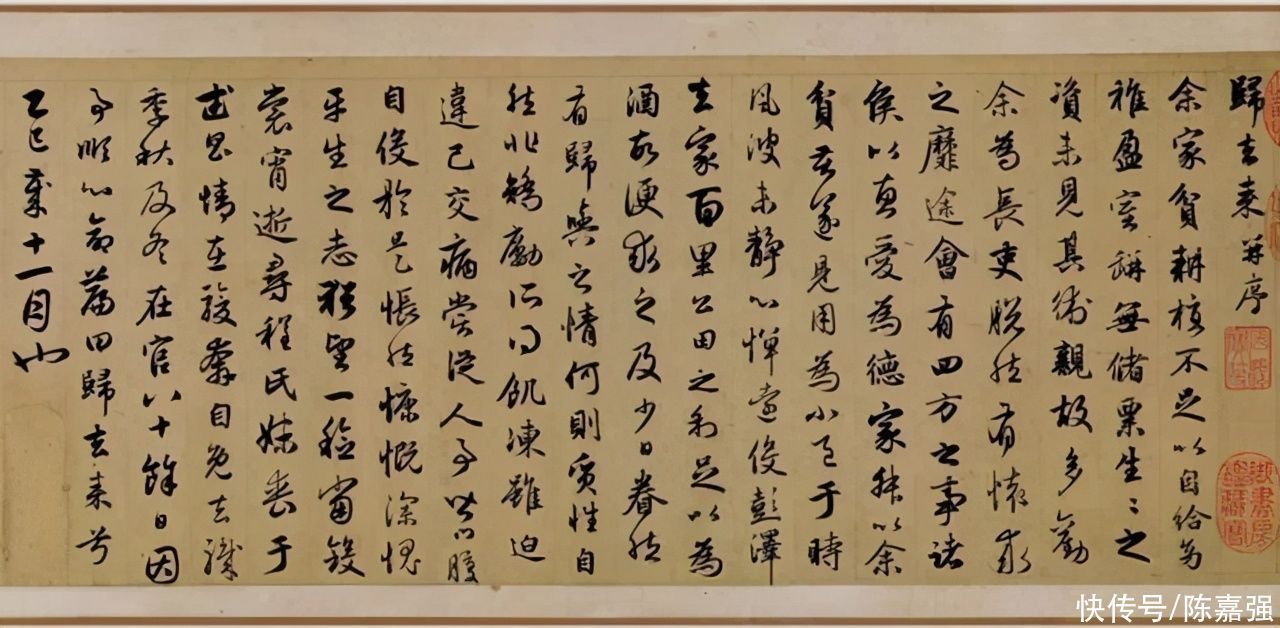 歸去來并序
余家貧耕植不足以自給幼
稚盈室缾無儲粟生〻之
資未見其術親故多勸
余為長吏脫然有懷求
之靡途會有四方之事諸
侯以惠愛為德家叔以余
貧苦遂見用為小邑于時
風波未靜心憚遠役彭澤
去家百里公田之利足以為
酒故便求之及少日眷然
有歸與之情何則質性自
然非矯勵所得飢凍雖迫
違己交病嘗從人事皆口腹
自役於是悵然慷慨深愧
平生之志猶望一稔當斂
裳宵逝尋程氏妹喪于
武昌情在駿奔自免去職
季秋及冬在官八十餘日因
事順心命篇曰歸去來兮
乙巳歲十一月也
快传号/陈嘉强